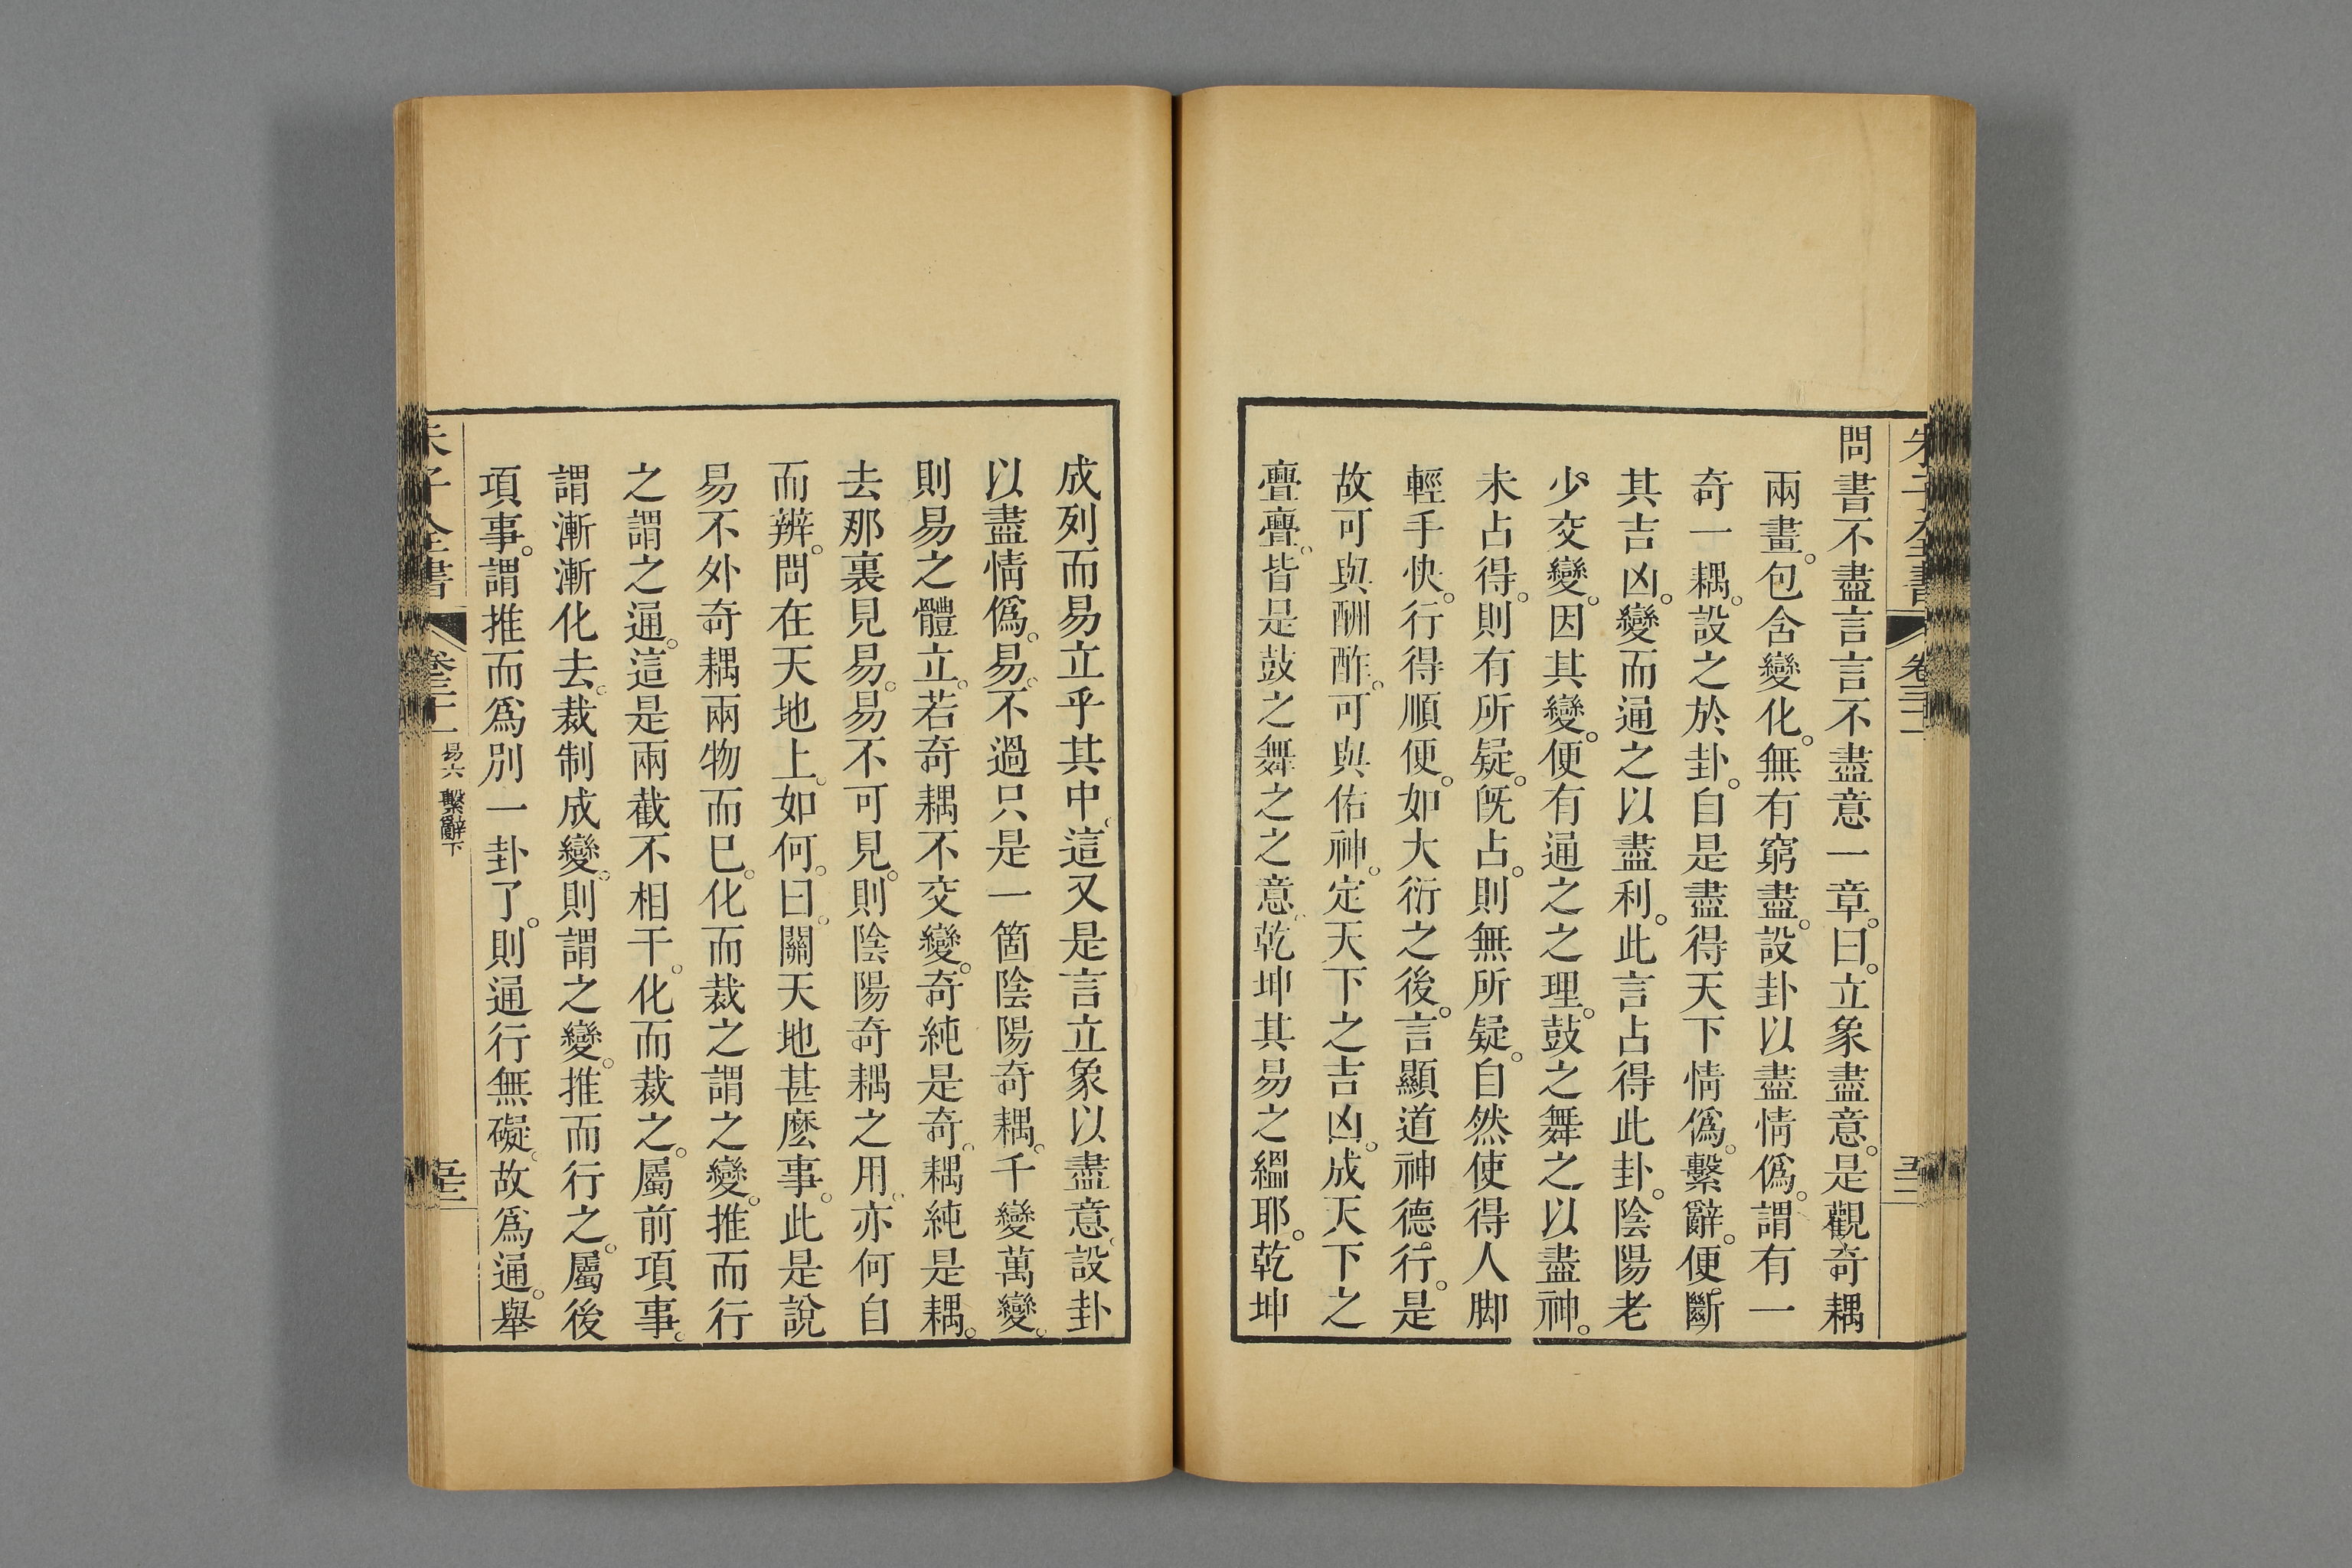 朱子全書
卷三十一
五十二
問書不盡言言不盡意一章。曰。立象盡意。是觀奇耦
兩畫。包含變化。無有窮盡。設卦以盡情僞。謂有一
奇一耦。設之於卦。自是盡得天下情僞。繫辭。便斷
其吉凶。變而通之以盡利。此言占得此卦。陰陽老
少交變。因其變。便有通之之理。鼓之舞之以盡神。
未占得。則有所疑。旣占。則無所疑。自然使得人脚
輕手快。行得順便。如大衍之後。言顯道神德行。是
故可與酬酢。可與佑神。定天下之吉凶。成天下之
亹亹。皆是鼓之舞之之意。乾坤其易之縕耶。乾坤
成列而易立乎其中。這又是言立象以盡意。設卦
以盡情僞。易。不過只是一箇陰陽奇耦。千變萬變。
則易之體立。若奇耦不交變。奇純是奇。耦純是耦。
去那裏見易。易不可見。則陰陽奇耦之用。亦何自
而辨。問在天地上。如何。曰。關天地甚麽事。此是說
易不外奇耦兩物而巳。化而裁之謂之變。推而行
之謂之通。這是兩截不相干。化而裁之。屬前項事。
謂漸漸化去。裁制成變。則謂之變。推而行之。屬後
項事。謂推而爲別一卦了。則通行無礙。故爲通。舉
朱子全書
卷三十一
易六 繫辭下